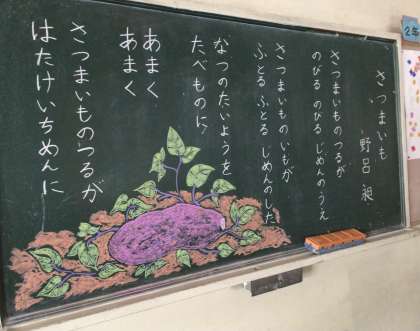 さつまいも
野呂 昶
さつまいものつるが
のびる のびる じめんのうえ
さつまいものいもが
ふとる ふとる じめんのした
なつのたいようを
たべものに
あまく
あまく
さつまいものつるが
はたけいちめんに
2年